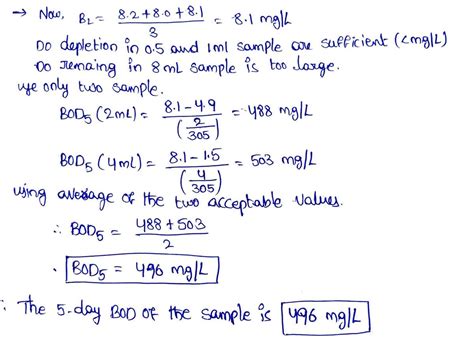 → Now, B2 = 8.2+8.0+8.1 / 3 = 8.1 mg/L
Do depletion in 0.5 and 1ml sample are sufficient (<mg/L)
Do remaing in 8mL sample is too large.
we only two sample.
BOD5 (2mL) = 8.1-4.9 / (2/305) = 488 mg/L
BOD5 (4mL) = 8.1-1.5 / (4/305) = 503 mg/L
using average of the two acceptable values.
∴ BOD5 = 488+503 / 2
. BOD5 = 496 mg/L
∴ The 5-day BOD of the sample is 496 mg/L